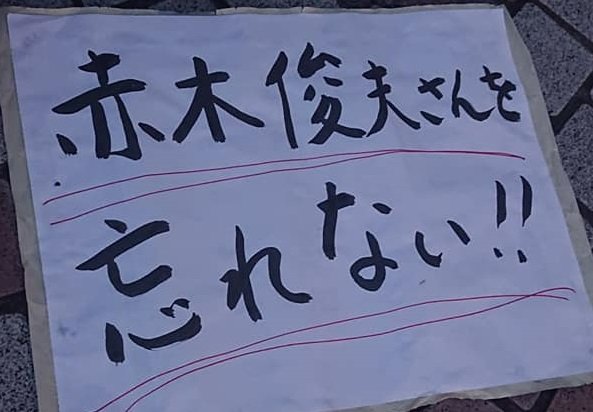 赤木俊夫さんを
忘れない!!